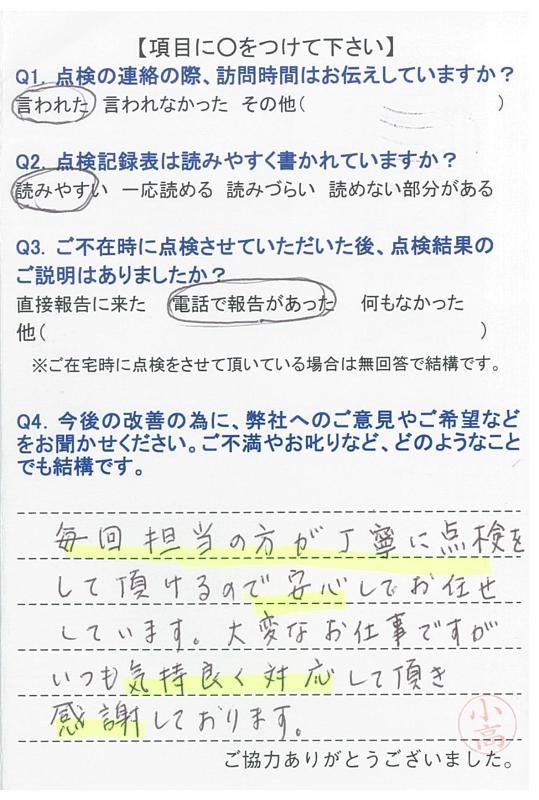 【項目に〇をつけて下さい】
Q1. 点検の連絡の際、訪問時間はお伝えしていますか?
言われた 言われなかった その他( )
Q2. 点検記録表は読みやすく書かれていますか?
読みやすい 一応読める 読みづらい 読めない部分がある
Q3. ご不在時に点検させていただいた後、点検結果の
ご説明はありましたか?
直接報告に来た 電話で報告があった 何もなかった
他( )
※ご在宅時に点検をさせて頂いている場合は無回答で結構です。
Q4. 今後の改善の為に、弊社へのご意見やご希望など
をお聞かせください。ご不満やお叱りなど、どのようなこと
でも結構です。
毎回担当の方が丁寧に点検を
して頂けるので安心してお任せ
しています。大変なお仕事ですが
いつも気持良く対応して頂き
感謝しております。
小高
ご協力ありがとうございました。